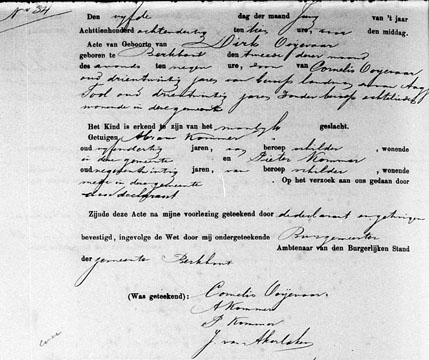 No 34
Den vyfde dag der maand Juny van 't jaar
Achttienhonderd achtendertig ten tien ure, voor den middag.
Acte van Geboorte van Dirk Ooyevaar
geboren te Berkhout den tweede dezer maand
des avonds ten negen ure, zoon van Cornelis Ooyevaar
oud drieëntwintig jaren van beroep landman en van Aagje
Tool oud drieëntwintig jaren zonder beroep echtelieden
wonende in deze gemeente
Het Kind is erkend te zijn van het manlyk geslacht.
Getuigen, Abram Kommer
oud vyfendertig jaren, van beroep schilder, wonende
in deze gemeente en Pieter Kommer
oud negenentwintig jaren, van beroep schilder, wonende
mede in deze gemeente. Op het verzoek aan ons gedaan door
den declarant
Zijnde deze Acte na mijne voorlezing geteekend door de declarant en getuigen
bevestigd, ingevolge de Wet door mij ondergeteekende Burgemeester
Ambtenaar van den Burgerlijken Stand
der gemeente Berkhout
(Was geteekend): Cornelis Ooijevaar.
A Kommer
P. Kommer
J. van Akerlaken